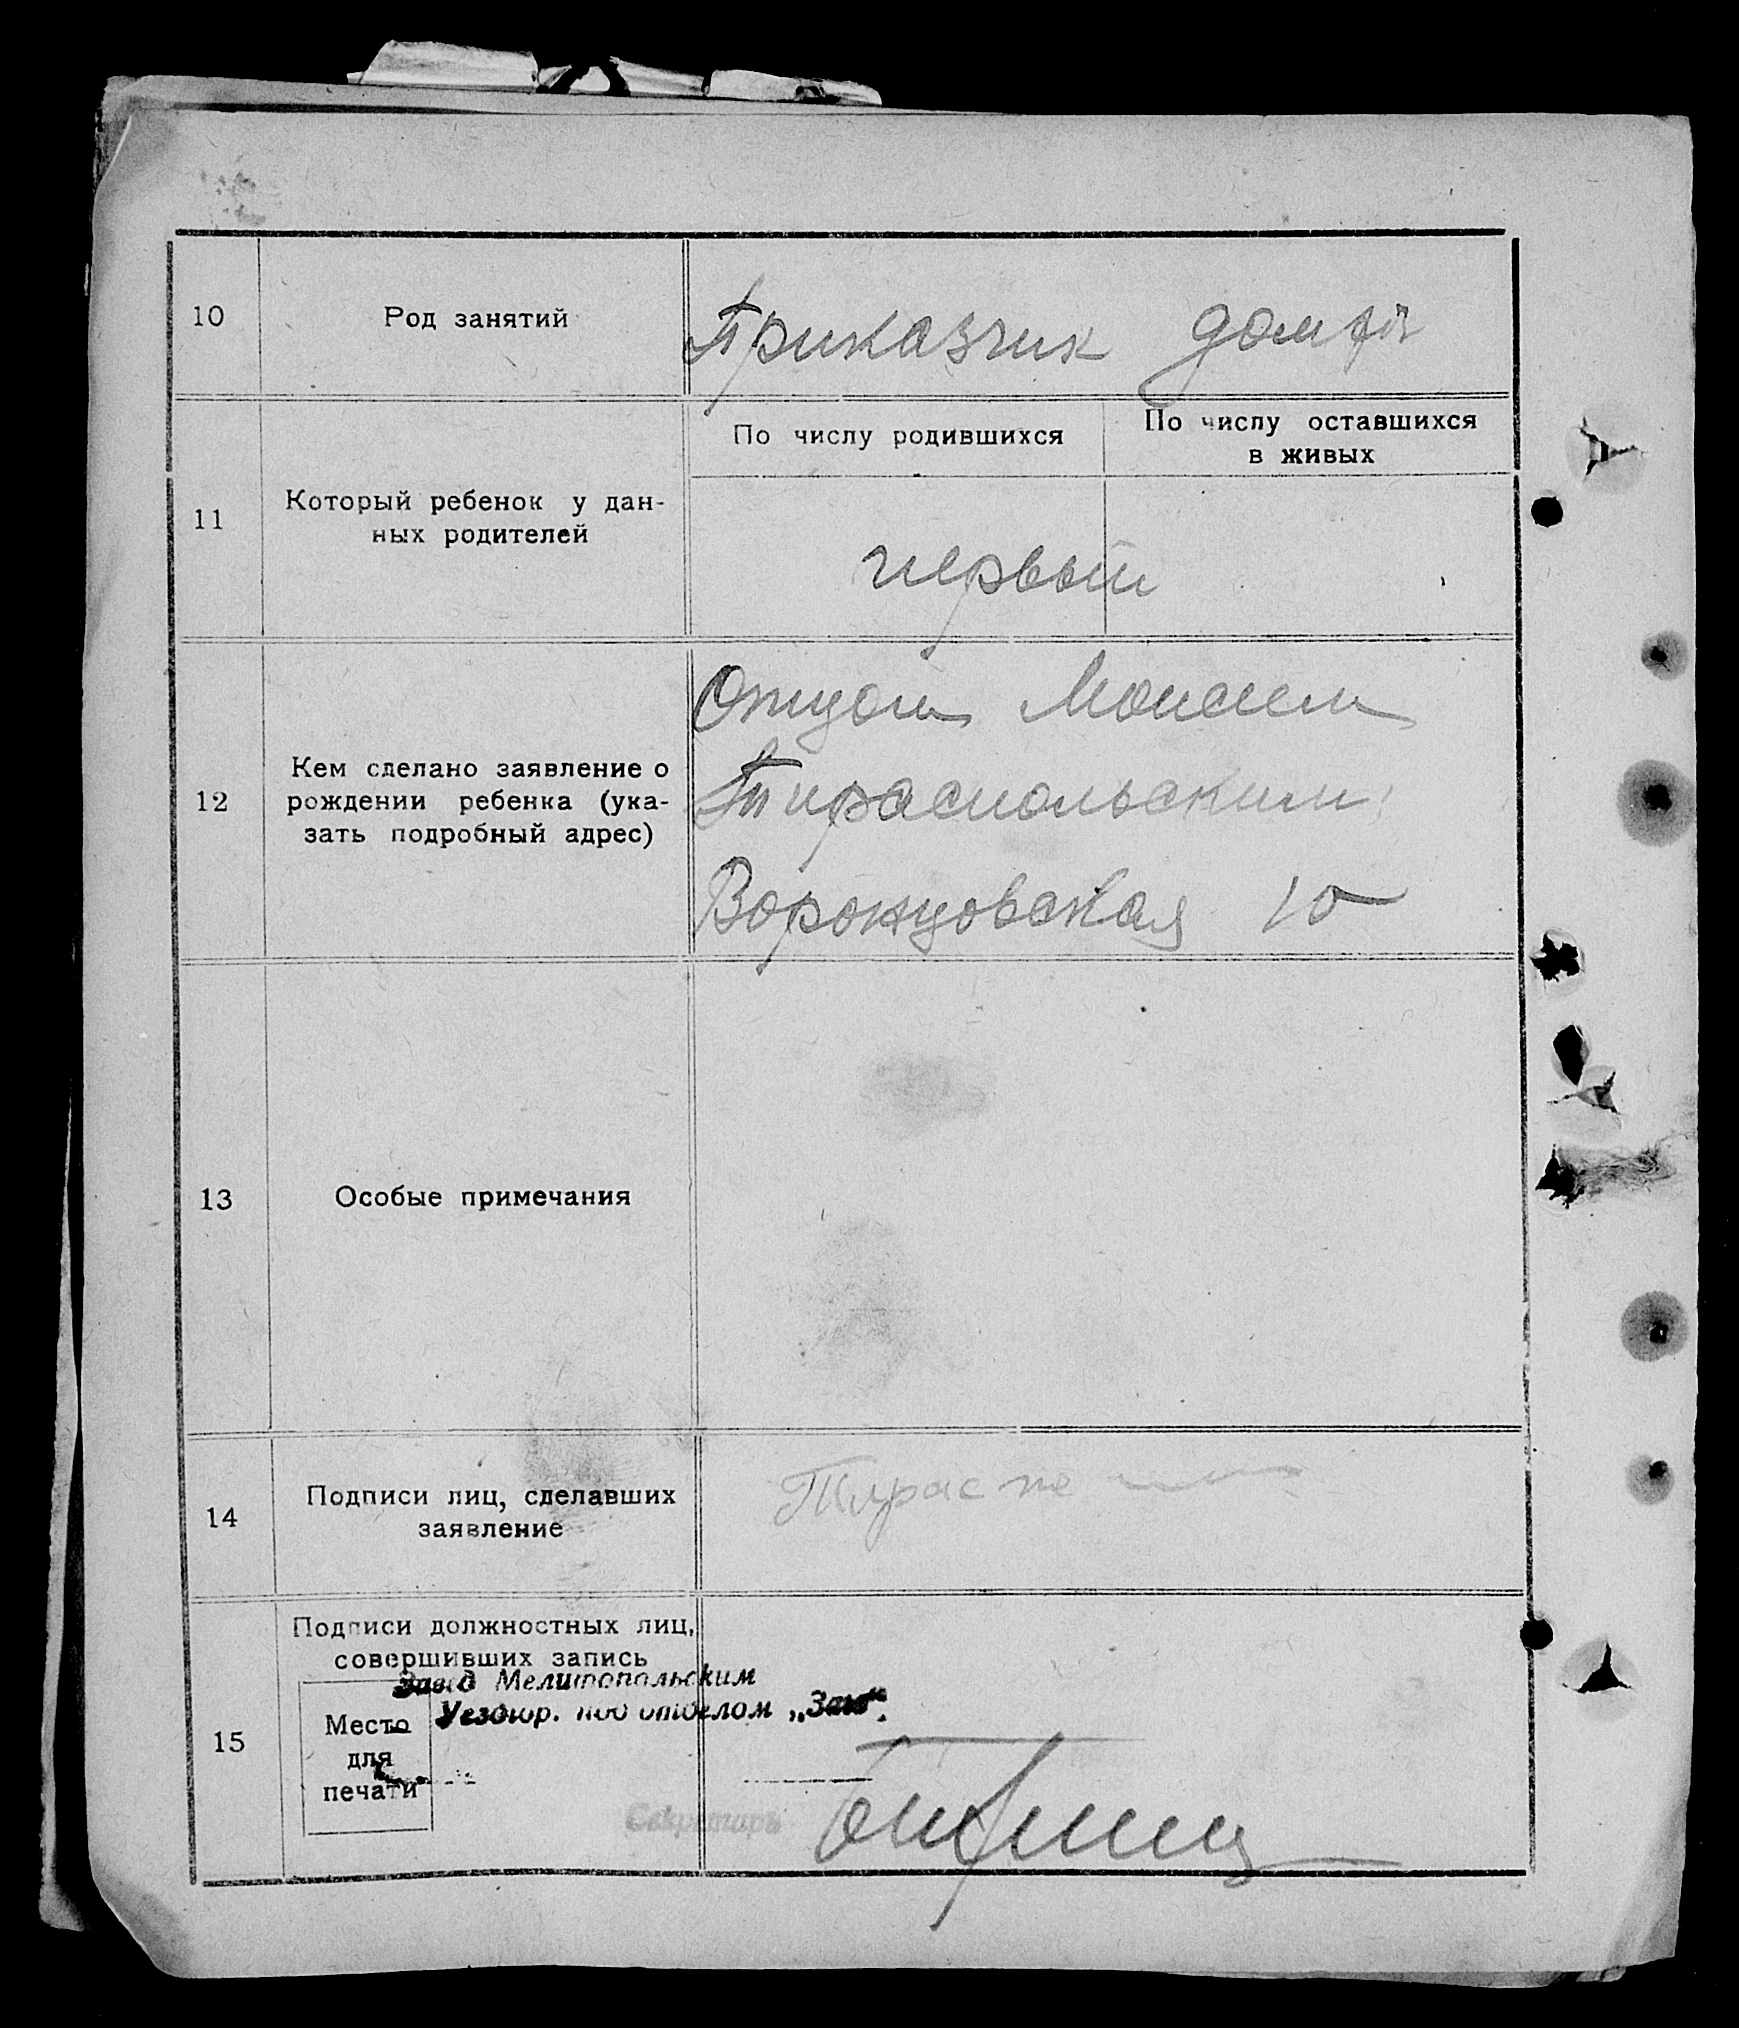 10
Род занятий
Приказчик дом
11
Который ребенок у дан-
ных родителей
По числу родившихся
По числу оставшихся
в живых
первый
12
Кем сделано заявление о
рождении ребенка (ука-
зать подробный адрес)
Отцом Моисеем
Тираспольским
Воронцовская 10
13
Особые примечания
14
Подписи лиц, сделавших
заявление
Тирасп
15
Подписи должностных лиц,
совершивших запись
Место
для
печати
Завед Мелитопольским
Уездгор. под отделом „Загс“.
Секретарь